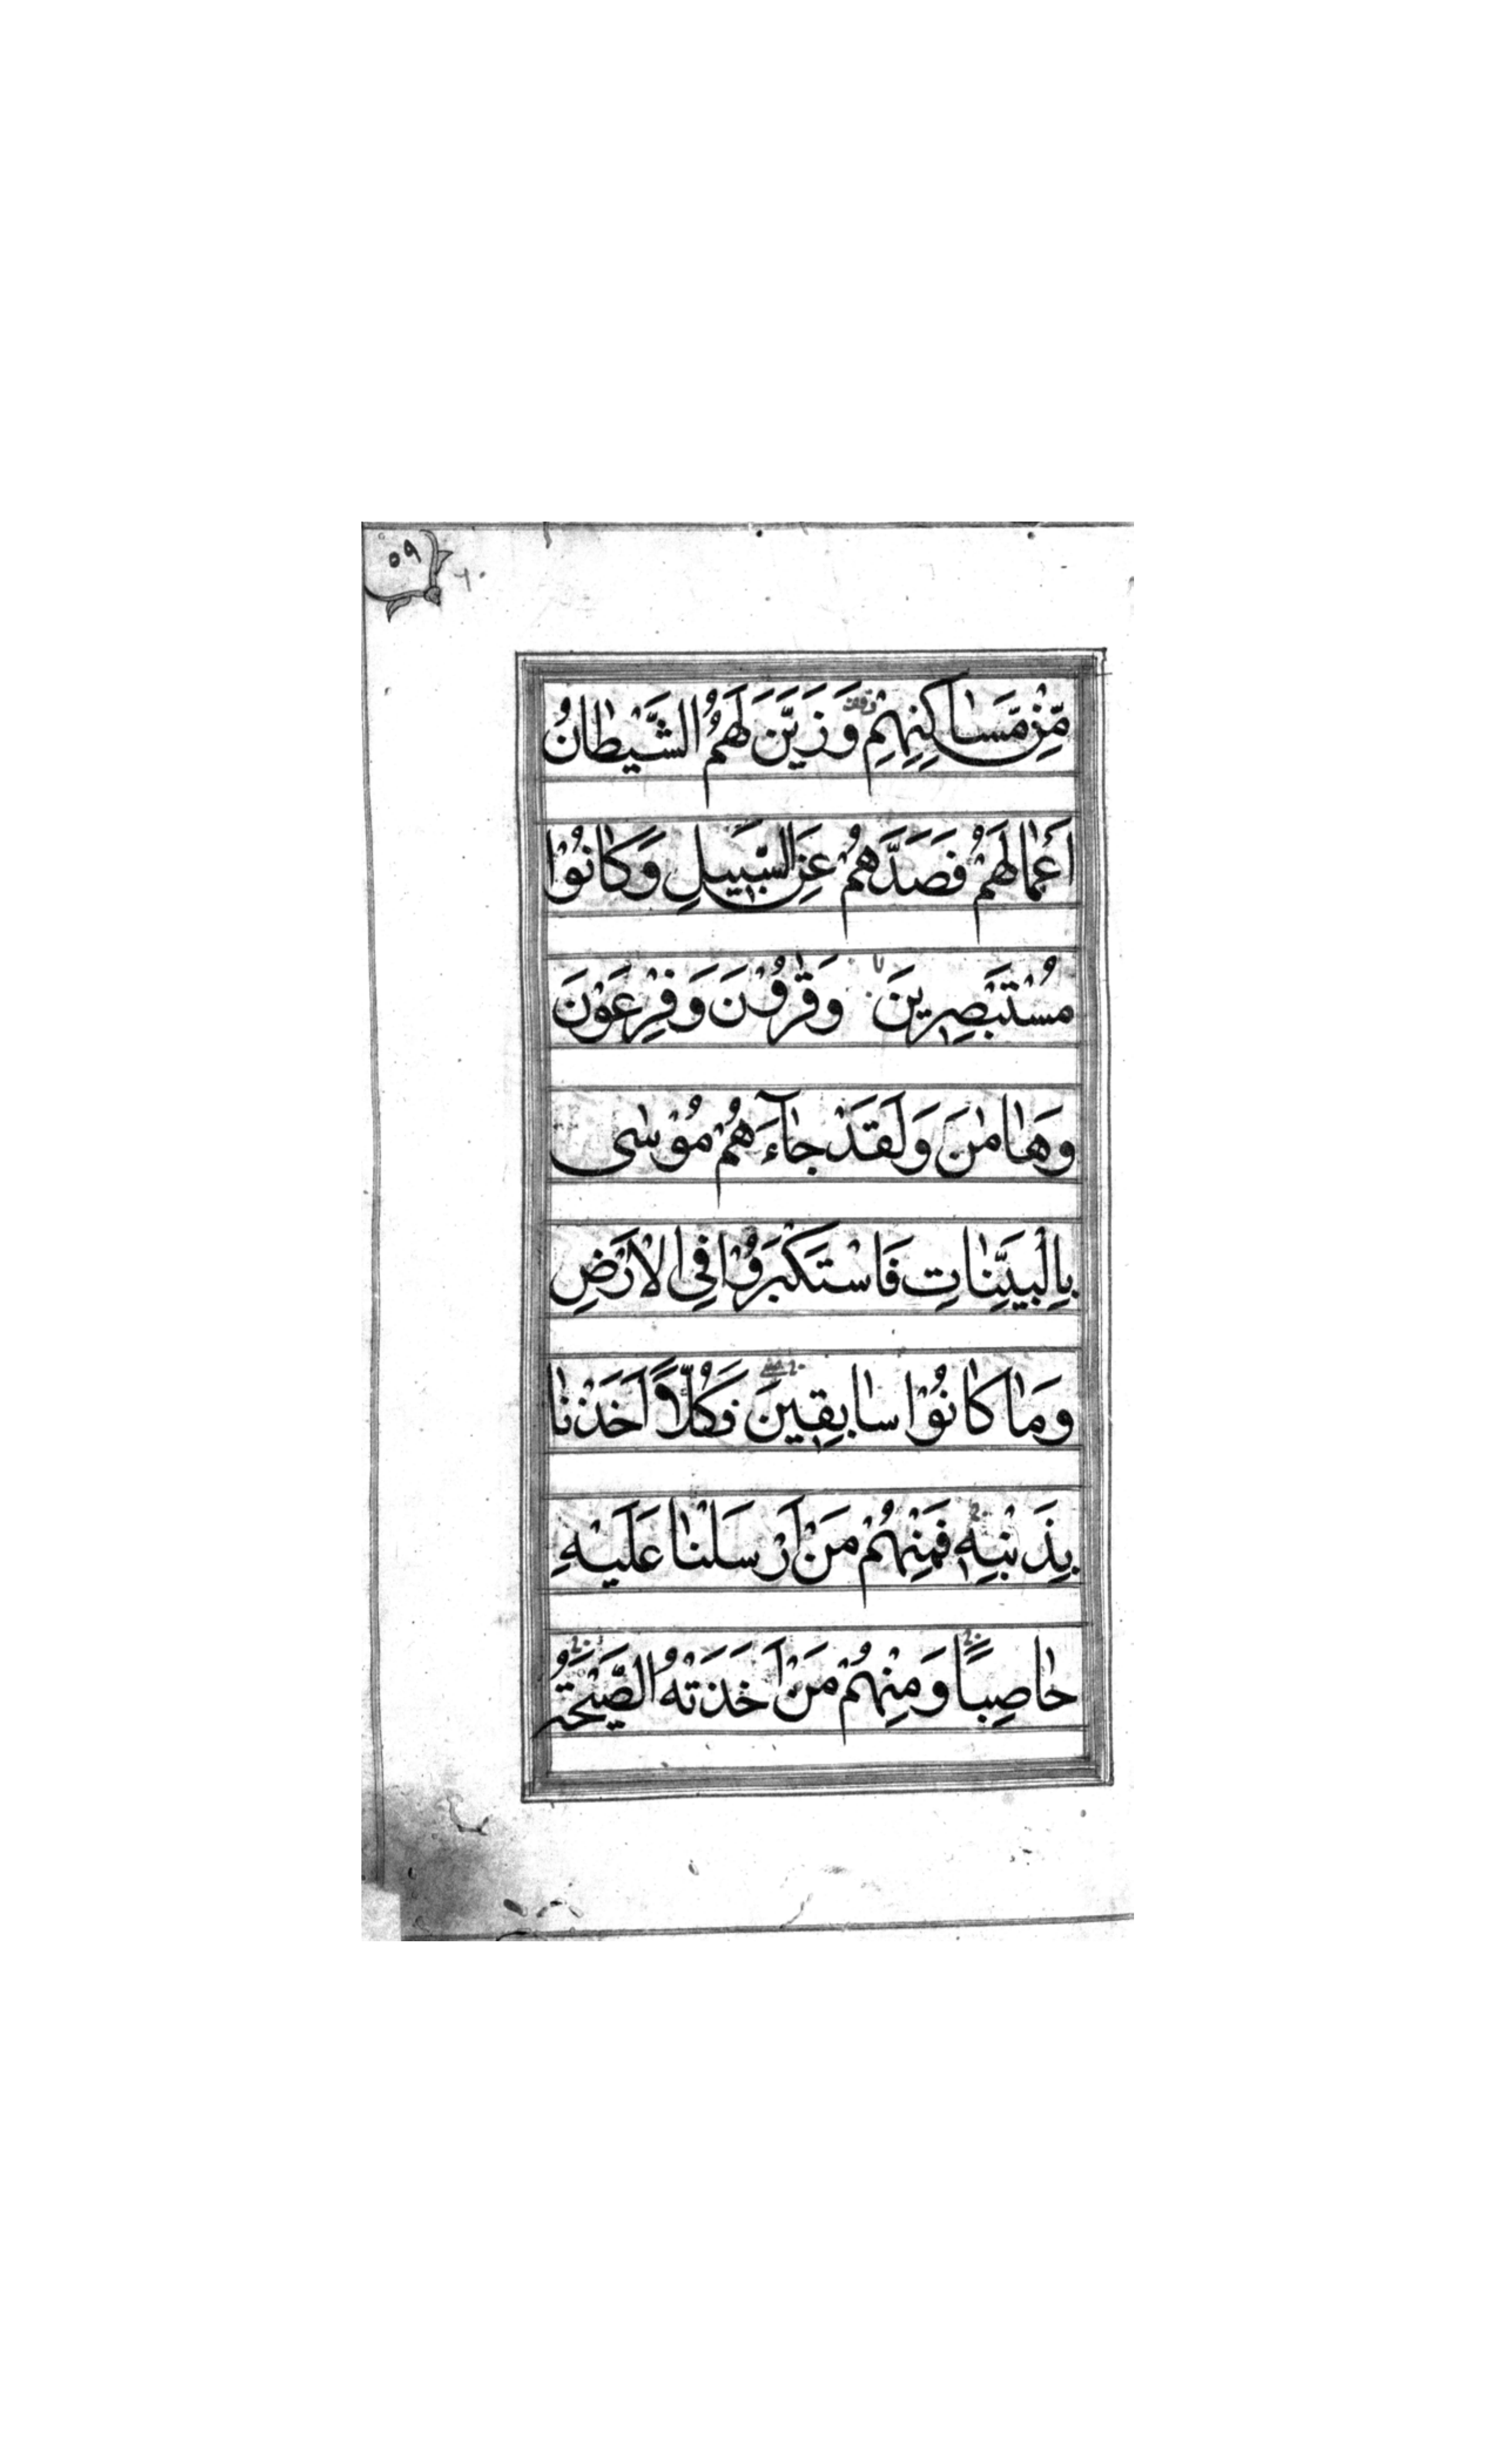 ٥٩
مِّنْ مَّسٰاكِنِهِمْ وقف وَزَيَّنَ لَهُمُ الشَّيْطٰانُ
اَعْمٰالَهُمْ فَصَدَّهُمْ عَنِ السَّبِيلِ وَكٰانُوْا
مُسْتَبْصِرِينَ لا وَقٰرُوْنَ وَفِرْعَوْنَ
وَهٰامٰنَ وَلَقَدْ جٰآءَهُمْ مُوْسٰى
بِالْبَيِّنٰاتِ فَاسْتَكْبَرُوْا فِي الْاَرْضِ
وَمٰا كٰانُوْا سٰابِقِينَ فَكُلًّا اَخَذْنٰا
بِذَنْبِهِ فَمِنْهُمْ مَنْ اَرْسَلْنٰا عَلَيْهِ
حٰاصِبًا وَمِنْهُمْ مَنْ اَخَذَتْهُ الصَّيْحَةُ